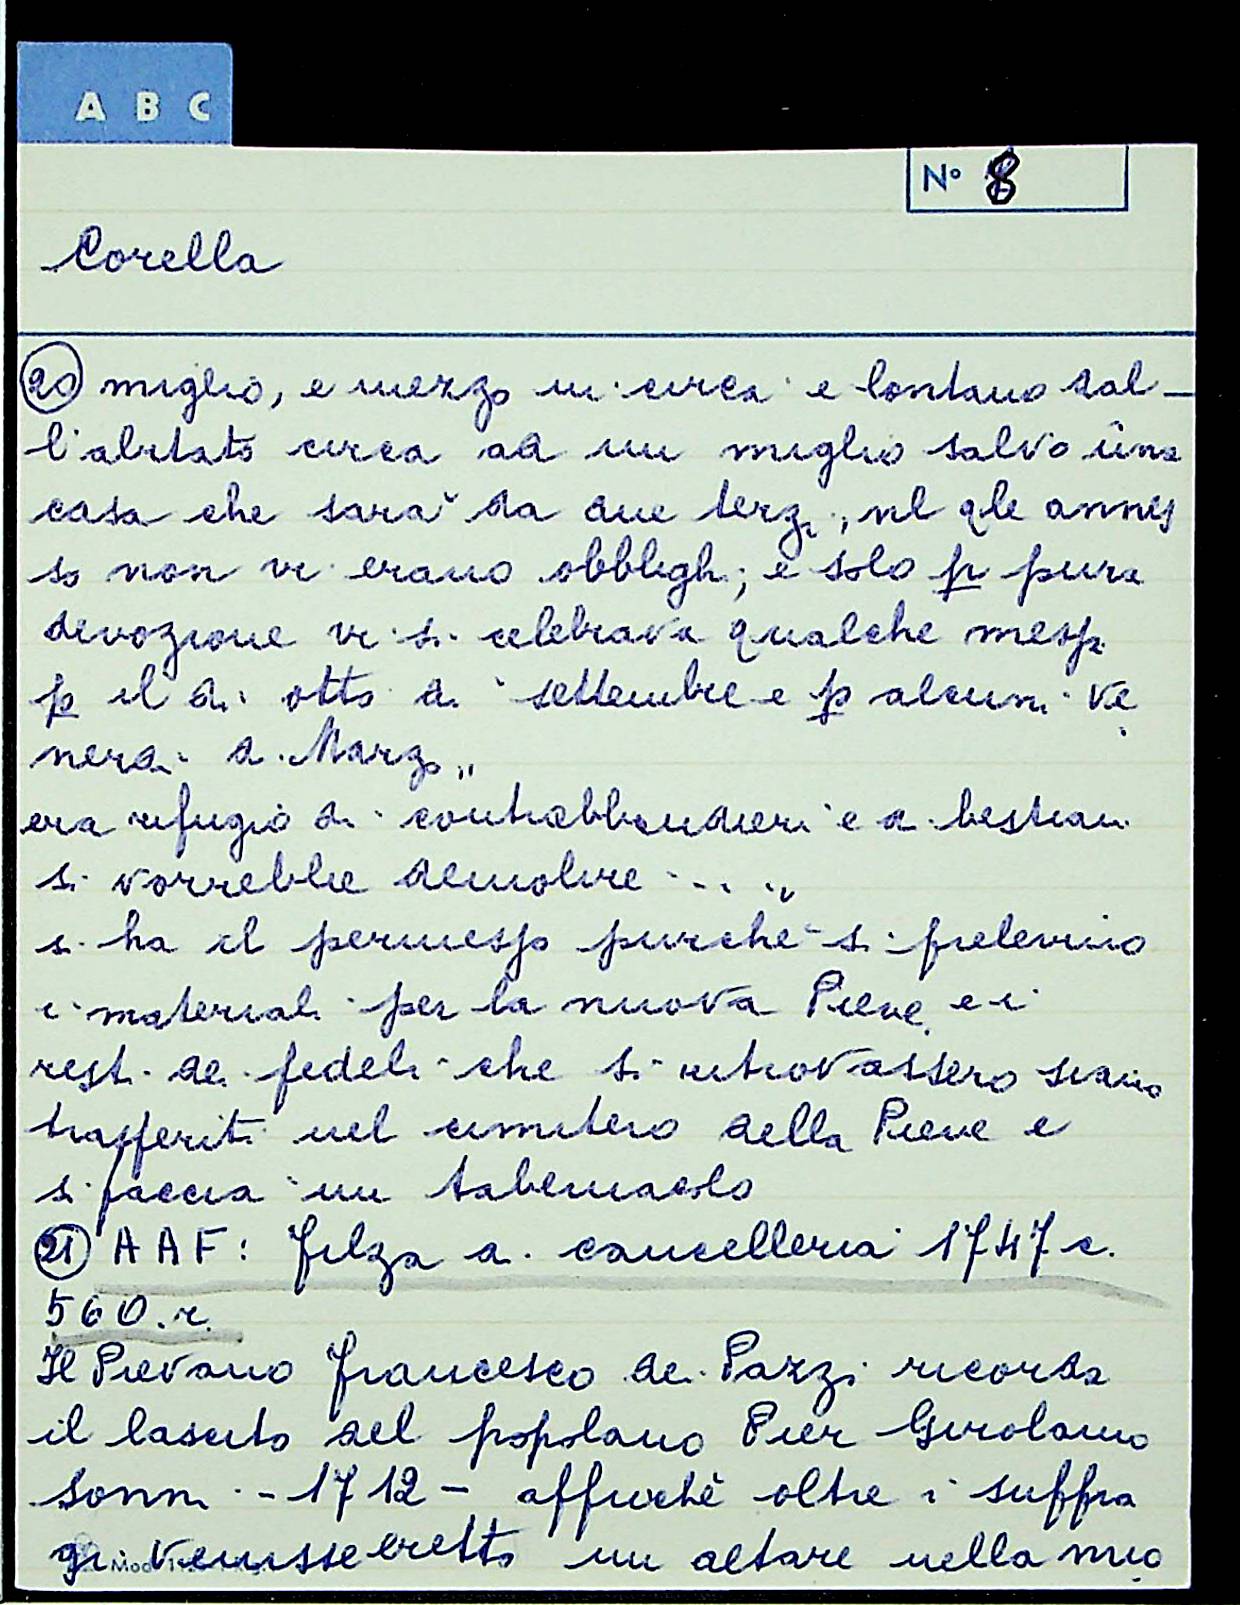 A B C
N° 8
Corella
20 miglio, e mezzo in circa e lontano dal-
l'abitato circa ad un miglio salvo una
casa che sarà da due terzi, nel qle annes
so non vi erano obblighi; e solo p pura
devozione vi si celebrava qualche messa
p il di otto di settembre e p alcuni ve
nerdi di Marzo"
era rifugio di contrabbandieri e di bestiami
si vorrebbe demolire ... "
si ha il permesso purchè si prelevino
i materiali per la nuova Pieve e i
resti dei fedeli che si ritrovassero siano
trasferiti nel cimitero della Pieve e
si faccia un tabernacolo
21 AAF: filza di cancelleria 1747 c.
560.r.
Il Pievano Francesco de Pazzi ricorda
il lascito del popolano Pier Girolamo
Sonni - 1712 - affinchè oltre i suffra
gi venisse eretto un altare nella mio
Mod.